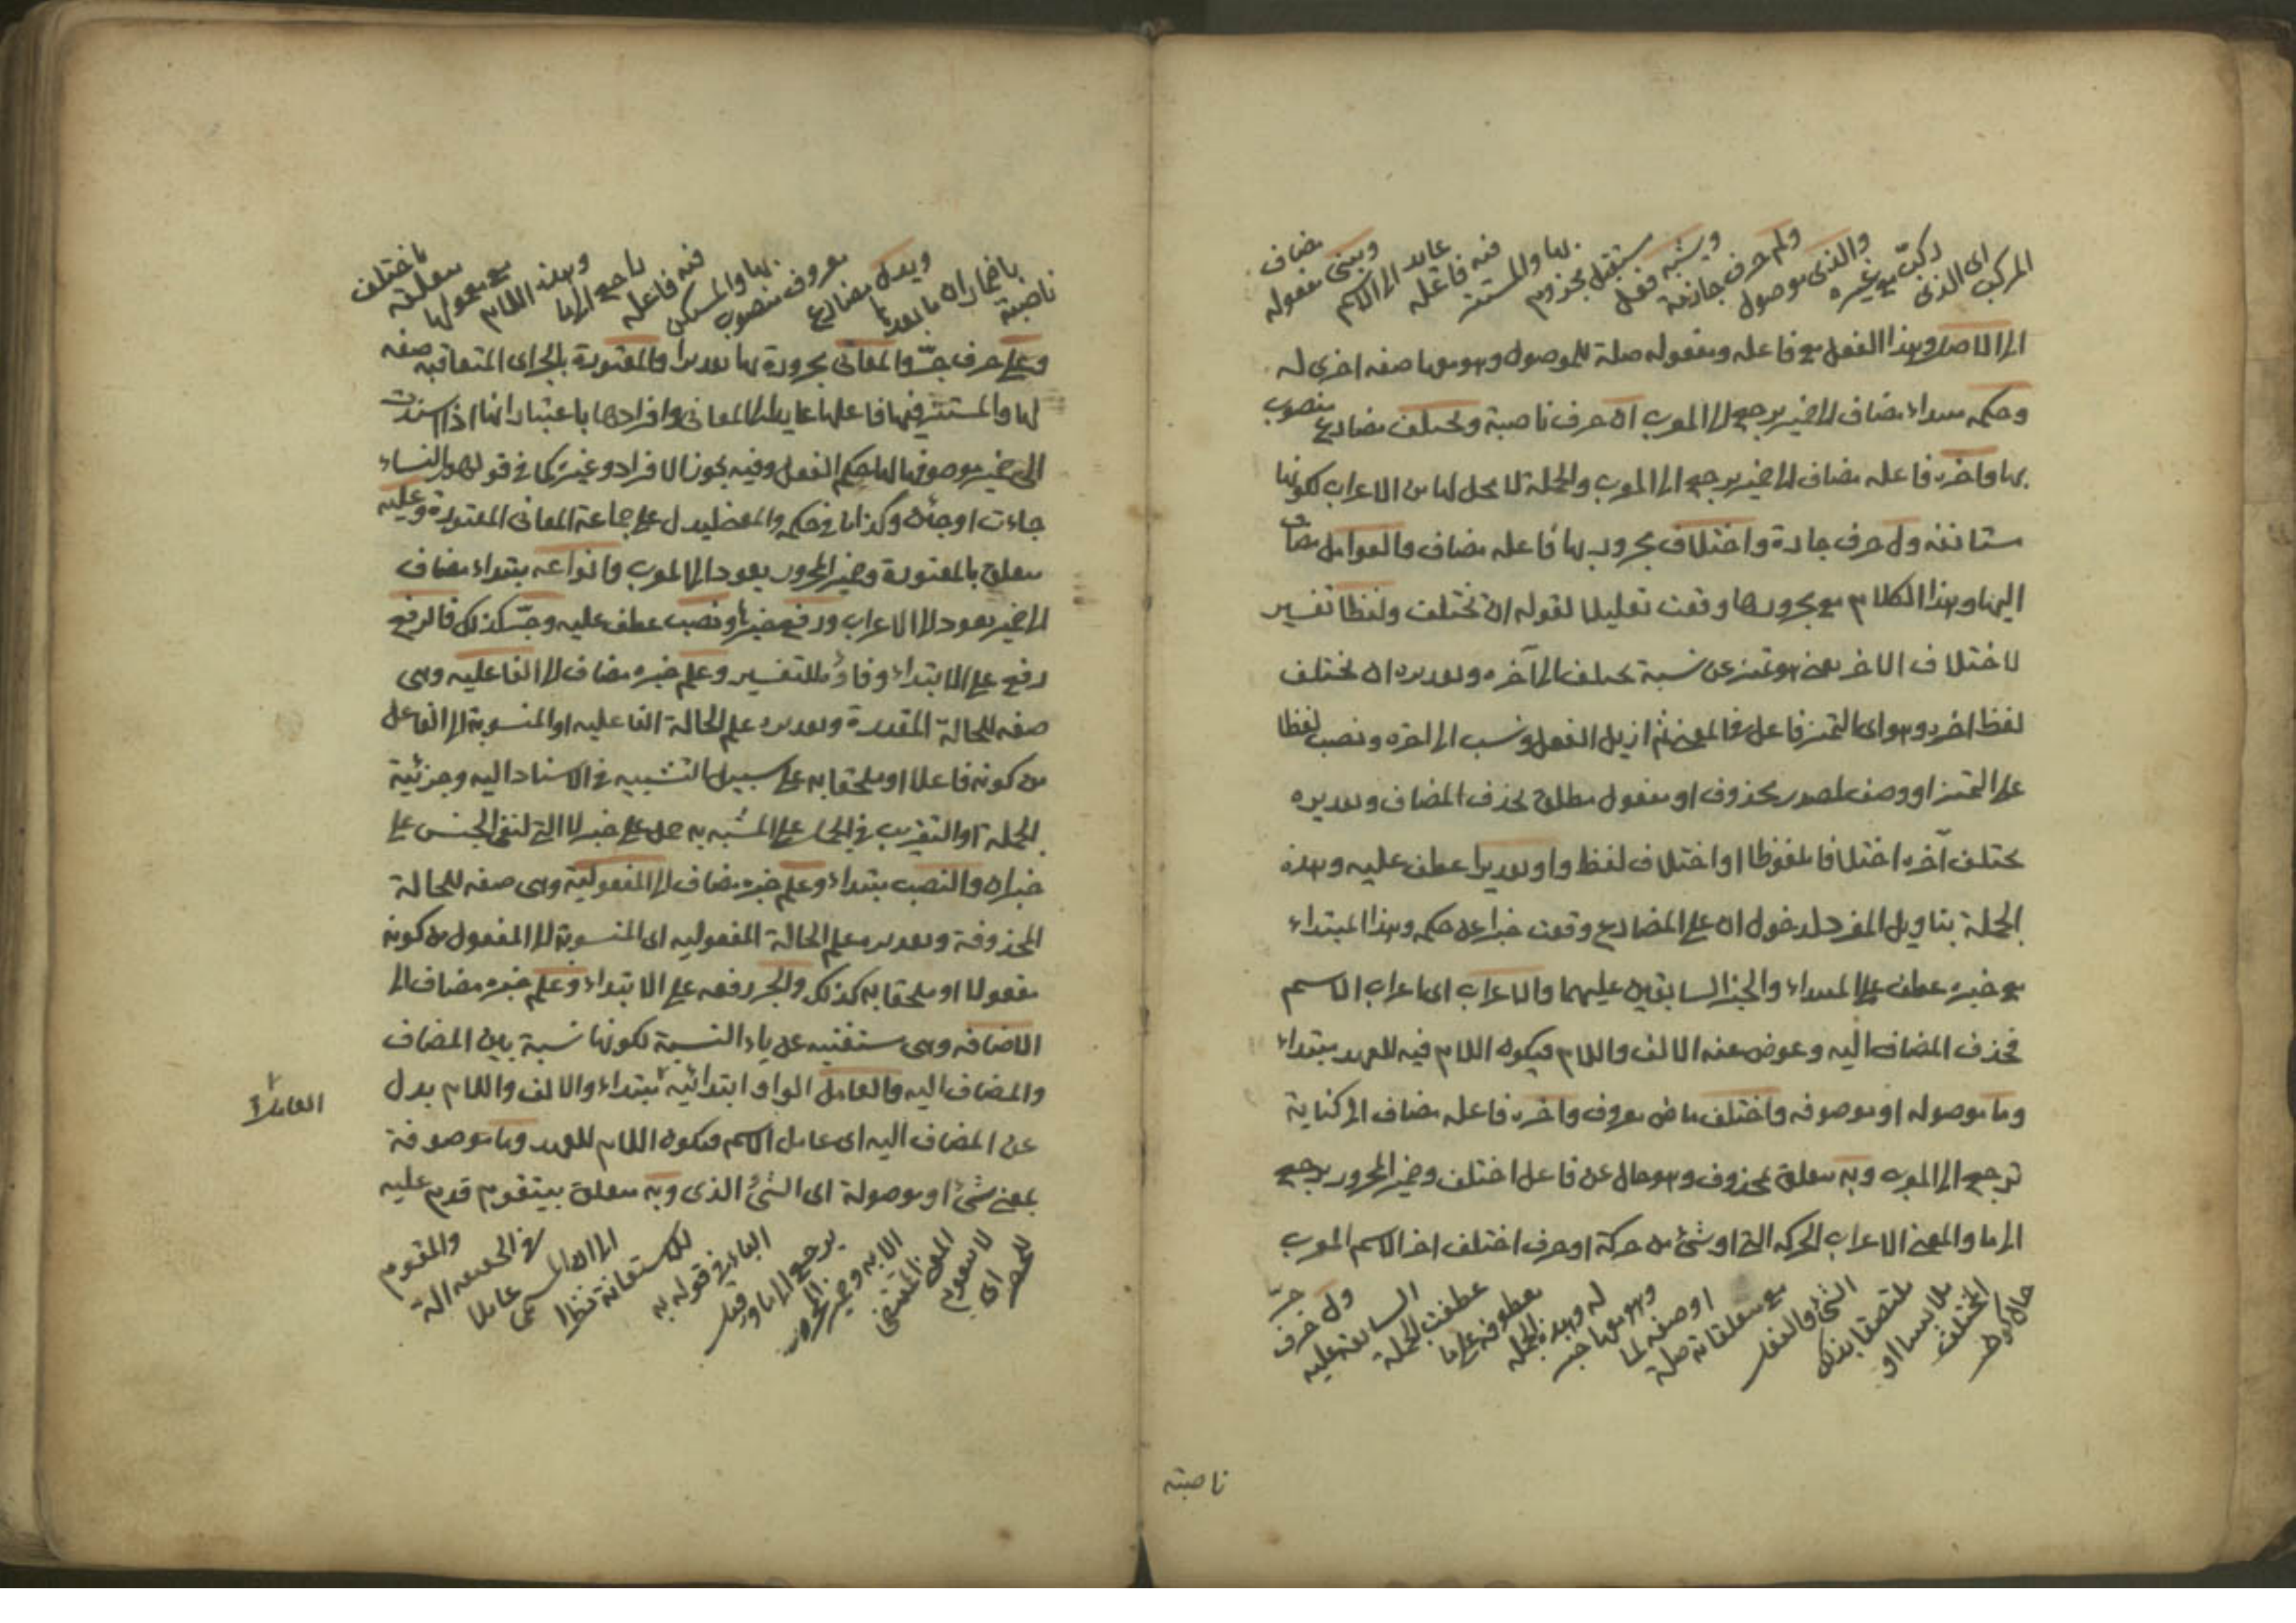 المركب اى الذى ركب مع غيره والذى موصول ولم حرف جازمة ويشبه فعل مستقبل مجزوم بها والمستتر فيه فاعله عايد الى الاسم ومبنى مفعوله مضاف
الى الاصل وهذا الفعل مع فاعله ومفعوله صلة للموصول وهو معها صفه اخرى له
وحكمه مبتداء مضاف الى ضمير يرجع الى المعرب ان حرف ناصبة ويختلف مضارع منصوب
بها واخره فاعله مضاف الى ضمير يرجع الى المعرب والجملة لا محل لها من الاعراب لكونها
مستانفه ول حرف جارة واختلاف مجرور بها فاعله مضاف والعوامل مضاف
اليها وهذا الكلام مع مجرورها وقعت تعليلا لقوله ان يختلف ولفظا تفسير
لاختلاف الاخر يعنى هو تميز عن نسبة يختلف الى آخره وتقديره ان يختلف
لفظ اخره وهو اى التميز فاعل فى المعنى ثم ازيل الفعل ونسب الى اخره ونصب لفظا
على التميز او وصف لمصدر محذوف او مفعول مطلق بحذف المضاف وتقديره
يختلف آخره اختلافا ملفوظا او اختلاف لفظ واو تقديرا عطف عليه وهذه
الجملة بتاويل المفرد لدخول ان على المضارع وقعت خبرا عن حكمه وهذا المبتداء
مع خبره عطف على المبتداء والخبر السابقين عليهما والاعراب اى اعراب الاسم
فحذف المضاف اليه وعوض عنه الالف واللام فيكون اللام فيه للعهد مبتداء
وما موصوله او موصوفه واختلف ماض معروف واخره فاعله مضاف الى كناية
ترجع الى المعرب وبه متعلق بمحذوف وهو حال عن فاعل اختلف وضمير المجرور يرجع
الى ما والمعنى الاعراب الحركة التى او شئ من حركة او حرف اختلف اخر الاسم المعرب
حال كون المختلف ملابسا او ملتصقا بذلك الشئ والفعل مع متعلقاته صلة او صفه لما وهو معها خبر له وهذه الجمله معطوفه على ما عطفت الجملة السابقه عليه ول حرف جر
ناصبته
ناصبة باضمار ان ما بعدها ويدل مضارع معروف منصوب بها والمستكن فيه فاعله راجع الى ما وهذه اللام مع معمولها متعلقة باختلف
وعلى حرف جر والمعانى مجرورة بها تقديرا والمعتورة بالجر اى المتعاقبه صفه
لها والمستتر فيها فاعلها عايد الى المعانى وافرادها باعتبار انها اذا اسندت
الى ضمير موصوفها لها حكم الفعل وفيه يجوز الافراد وغيره كما فى قولهم النساء
جاءت او جئن وكذا ما فى حكمه والمعنى ليدل على جماعة المعانى المعتورة وعليه
متعلق بالمعتورة وضمير المجرور يعود الى المعرب وانواعه مبتداء مضاف
الى ضمير يعود الى الاعراب ورفع خبرها ونصب عطف عليه وجر كذلك فالرفع
رفع على الابتداء وفاؤه للتفسير وعلم خبره مضاف الى الفاعليه وهى
صفه للحالة المقدرة وتقديره علم الحالة الفاعليه او المنسوبة الى الفاعل
من كونه فاعلا او ملحقا به على سبيل التشبيه فى الاسناد اليه وجزئية
الجملة او التقريب فى الحمل على المشبه به حمل على خبر لا التى لنفى الجنس على
خبر ان والنصب مبتداء وعلم خبره مضاف الى المفعولية وهى صفه للحالة
المحذوفة وتقديره علم الحالة المفعوليه اى المنسوبة الى المفعول من كونه
مفعولا او ملحقا به كذلك والجر رفعه على الابتداء وعلم خبره مضاف الى
الاضافه وهى مستغنيه عن ياء النسبة لكونها نسبة بين المضاف
والمضاف اليه والعامل الواو ابتدائية مبتداء والالف واللام بدل
العامل
عن المضاف اليه اى عامل الاسم فيكون اللام للعهد وما موصوفة
بمعنى شئ او موصولة اى الشئ الذى وبه متعلق بيتقوم قدم عليه
للحصر اى لا يتقوم المعنى المقتضى الا به وضمير المجرور يرجع الى ما وقيل الباء فى قوله به للاستعانة نظرا الى ان المسمى عاملا فى الحقيقه آلة والمقوم